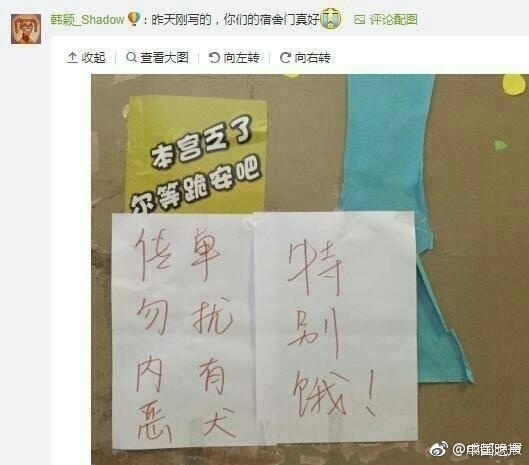 韩颖_Shadow：昨天刚写的，你们的宿舍门真好 评论配图
收起 查看大图 向左转 向右转
本宫乏了
尔等跪安吧
传单
勿扰
内有
恶犬
特
别
饿！